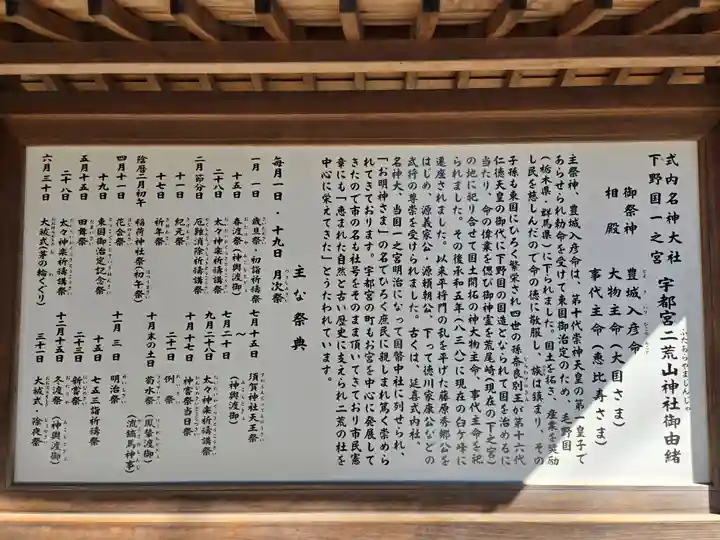 式内名神大社
下野国一之宮
宇都宮二荒山神社御由緒
ふたあらやまじんじゃ
御祭神 豊城入彦命
とよきいりひこのみこと
相殿 大物主命(大国さま)
事代主命(恵比寿さま)
主祭神、豊城入彦命は、第十代崇神天皇の第一皇子で
あらせられ勅命を受けて東国御治定のため、毛野国
(栃木県・群馬県)に下られました。国土を拓き、産業を奨励
し民を慈しんだので命の徳に敬服し、族は鎮まり、その
子孫も東国にひろく繁栄され四世の孫奈良別王が第十六代
仁徳天皇の御代に下野国の国造となられ国を治めるに
当たり、命の偉業を偲び御神霊を荒尾崎(現在の下之宮)
の地に祀り合せて国土開拓の神大物主命・事代主命を祀
られました。その後承和五年(八三八)に現在の臼ケ峰に
遷座されました。以来平将門の乱を平げた藤原秀郷公を
はじめ、源義家公・源頼朝公、下って徳川家康公などの
武将の尊崇を受けられました。古くは、延喜式内社、
名神大、当国一之宮明治になって国幣中社に列せられ、
「お明神さま」の名でひろく庶民に親しまれ篤く崇めら
れてきております。宇都宮の町もお宮を中心に発展して
きたので市の名も社号をそのまま頂いてきており市民憲
章にも「恵まれた自然と古い歴史に支えられ二荒の杜を
中心に栄えてきた」とうたわれています。
主な祭典
毎月一日・十九日 月次祭
一月一日 歳旦祭・初詣祈祷祭
十五日 春渡祭(神輿渡御)
二十八日 太々神楽祈祷講祭
二月節分日 厄難消除祈祷祭
十一日 紀元祭
十七日 祈年祭
陰暦二月初午 稲荷神社祭(初午祭)
四月十一日 花会祭
十九日 東国御治定記念祭
五月十五日 田舞祭
二十八日 太々神楽祈祷講祭
六月三十日 大祓式(茅の輪くぐり)
七月十五日 須賀神社天王祭
～
七月二十日 (神輿渡御)
九月二十八日 太々神楽祈祷講祭
十月十七日 神嘗祭当日祭
二十一日 例祭
十月末の土日 菊水祭(鳳輦渡御)
(流鏑馬神事)
十一月三日 明治祭
十五日 七五三詣祈祷祭
二十三日 新嘗祭
十二月十五日 冬渡祭(神輿渡御)
三十一日 大祓式・除夜祭